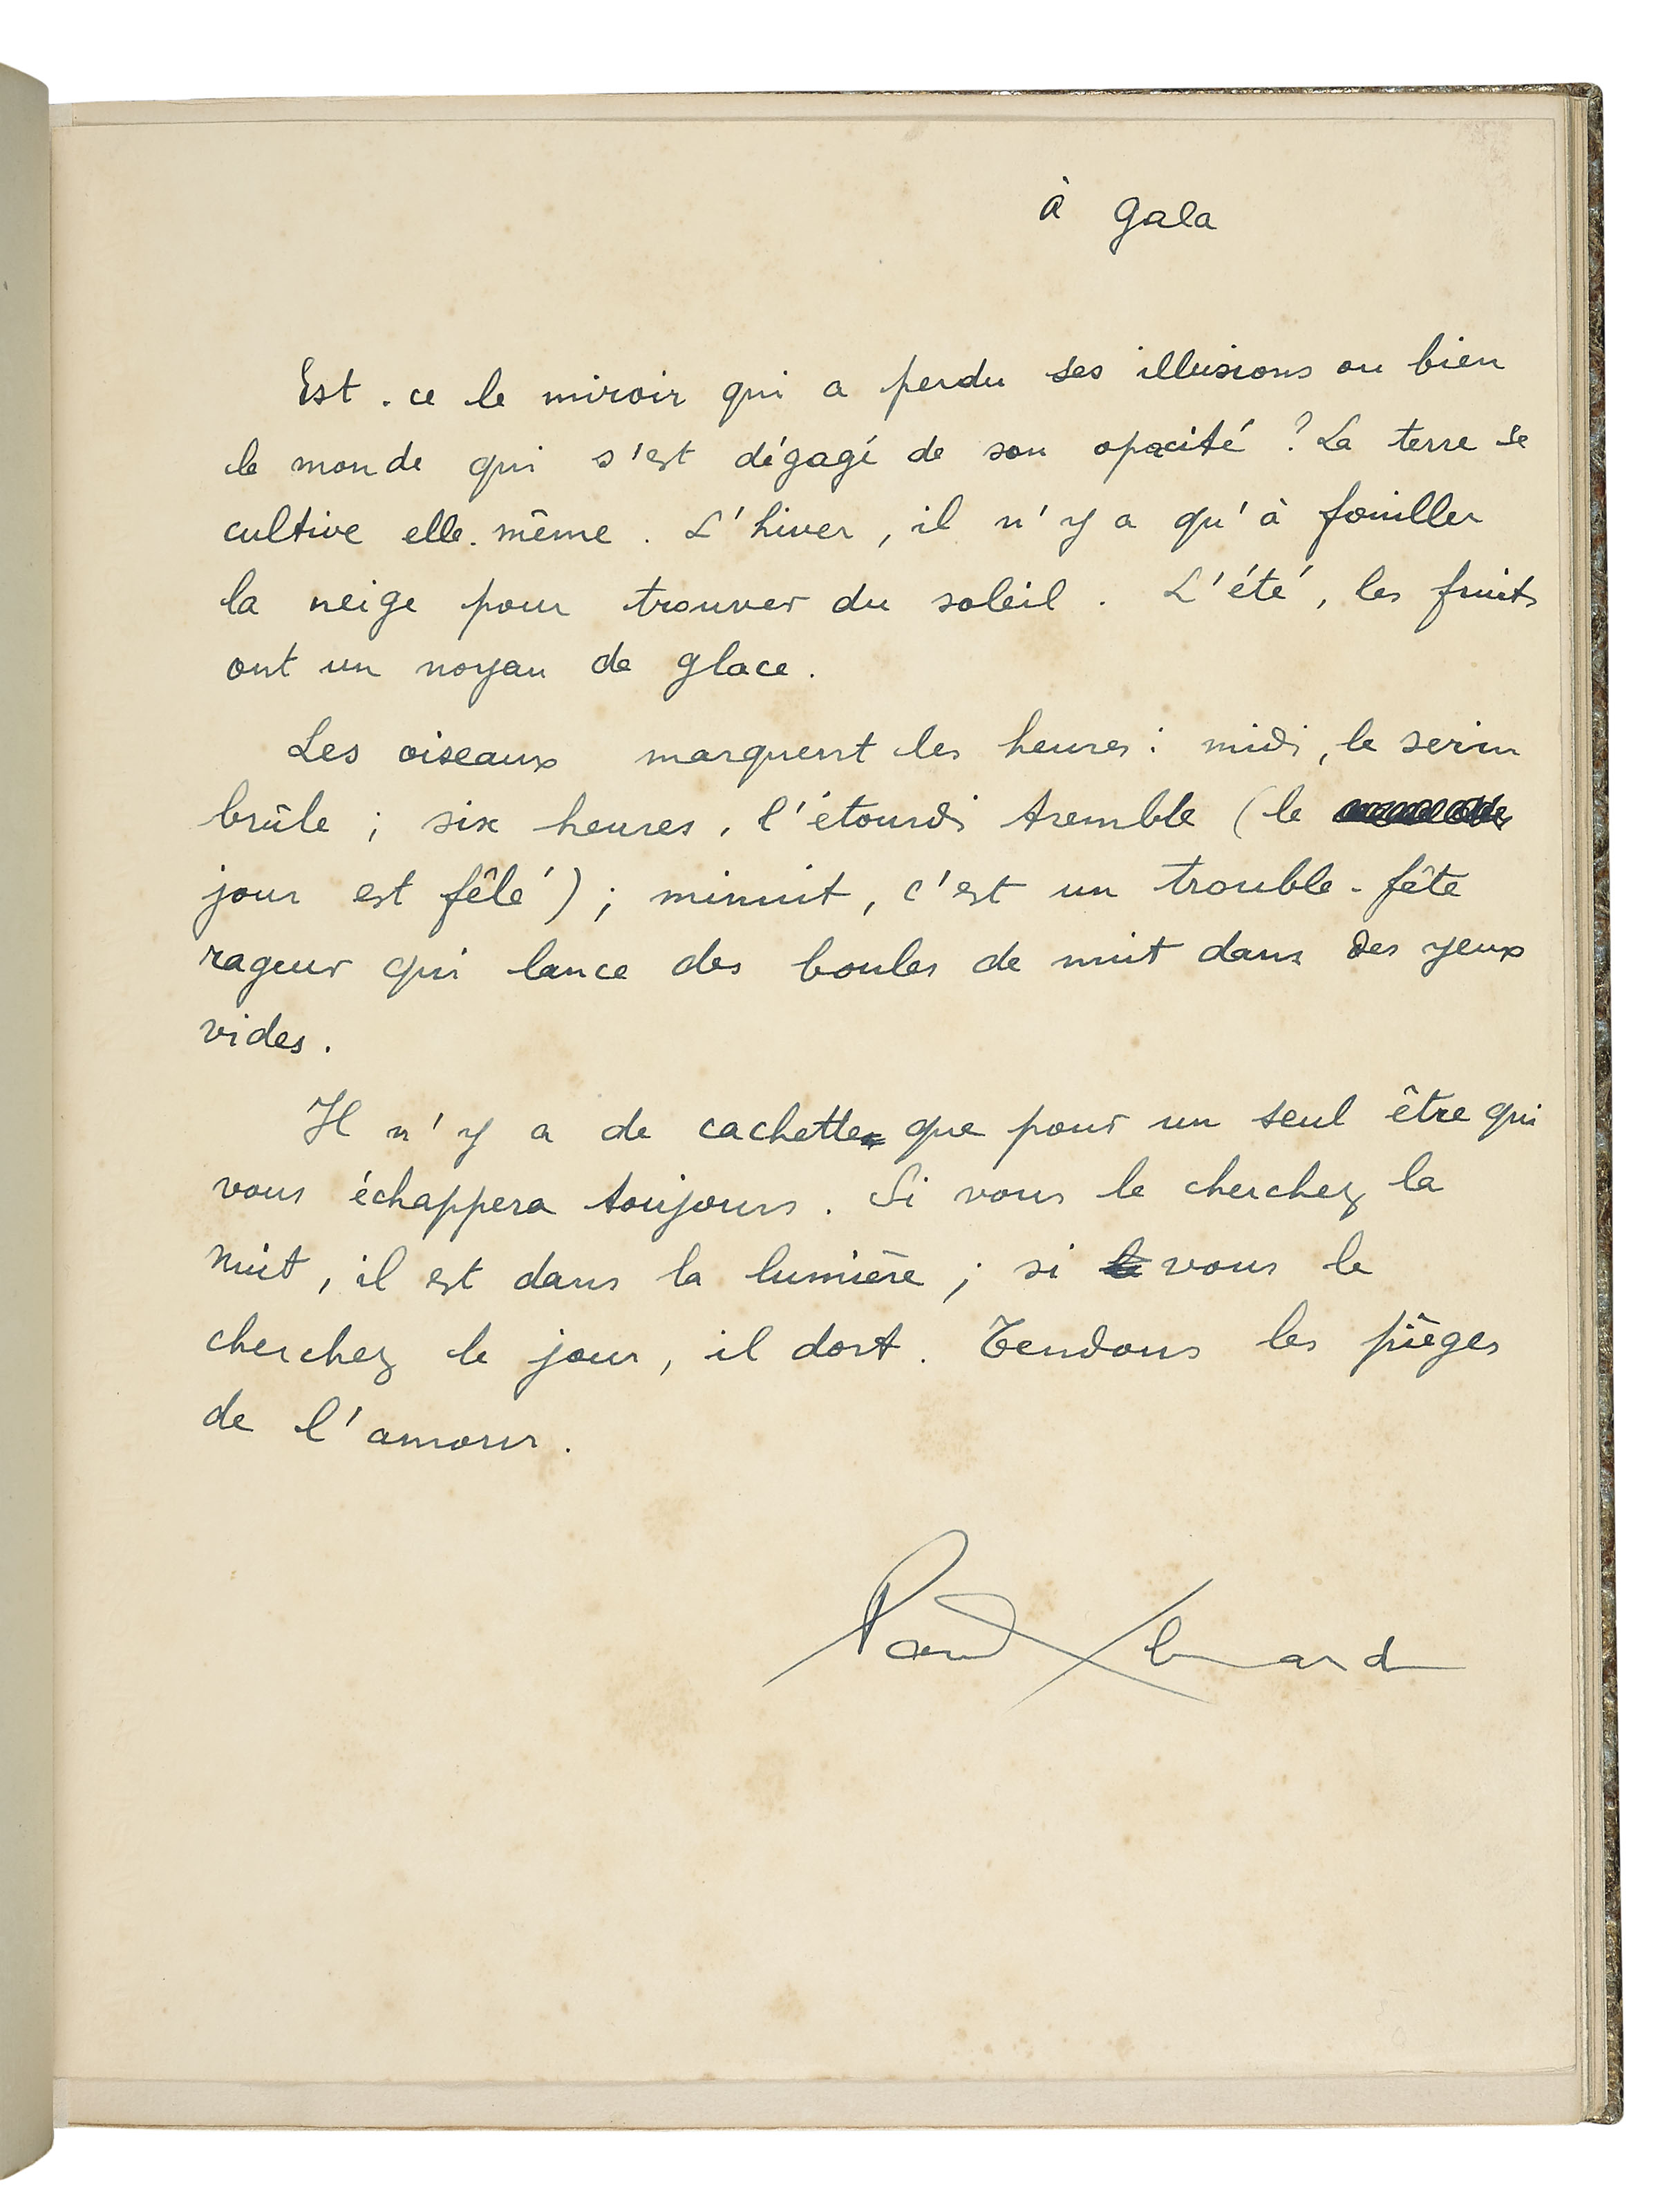 à Gala
Est-ce le miroir qui a perdu ses illusions ou bien
le monde qui s'est dégagé de son opacité ? La terre se
cultive elle-même. L'hiver, il n'y a qu'à fouiller
la neige pour trouver du soleil. L'été, les fruits
ont un noyau de glace.
Les oiseaux marquent les heures : midi, le serin
brûle ; six heures, l'étourdi tremble (le
jour est fêlé) ; minuit, c'est un trouble-fête
rageur qui lance des boules de nuit dans des yeux
vides.
Il n'y a de cachette que pour un seul être qui
vous échappera toujours. Si vous le cherchez la
nuit, il est dans la lumière ; si vous le
cherchez le jour, il dort. Tendons les pièges
de l'amour.
Paul Eluard